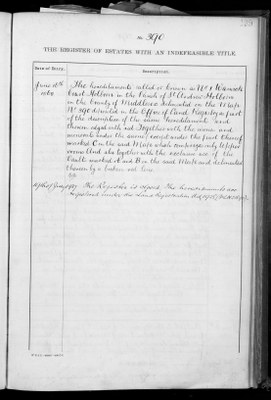 No. 390
THE REGISTER OF ESTATES WITH AN INDEFEASIBLE TITLE.
Date of Entry. Description.
June 18th The hereditaments called or known as No. 1 Warwick
Court Holborn in the Parish of St. Andrew Holborn
in the County of Middlesex delineated on the Map
No. 390 deposited in the Office of Land Registry as part
of the description of the same hereditament and
thereon edged with red Together with the area and
basements under the same except under the part thereof
marked C on the said Map which comprises only Upper
rooms And also together with the exclusive use of the
Vaults marked A and B on the said Map and delineated
thereon by a broken red line.
The Register is closed. The hereditaments are
registered under the Land Registration Act